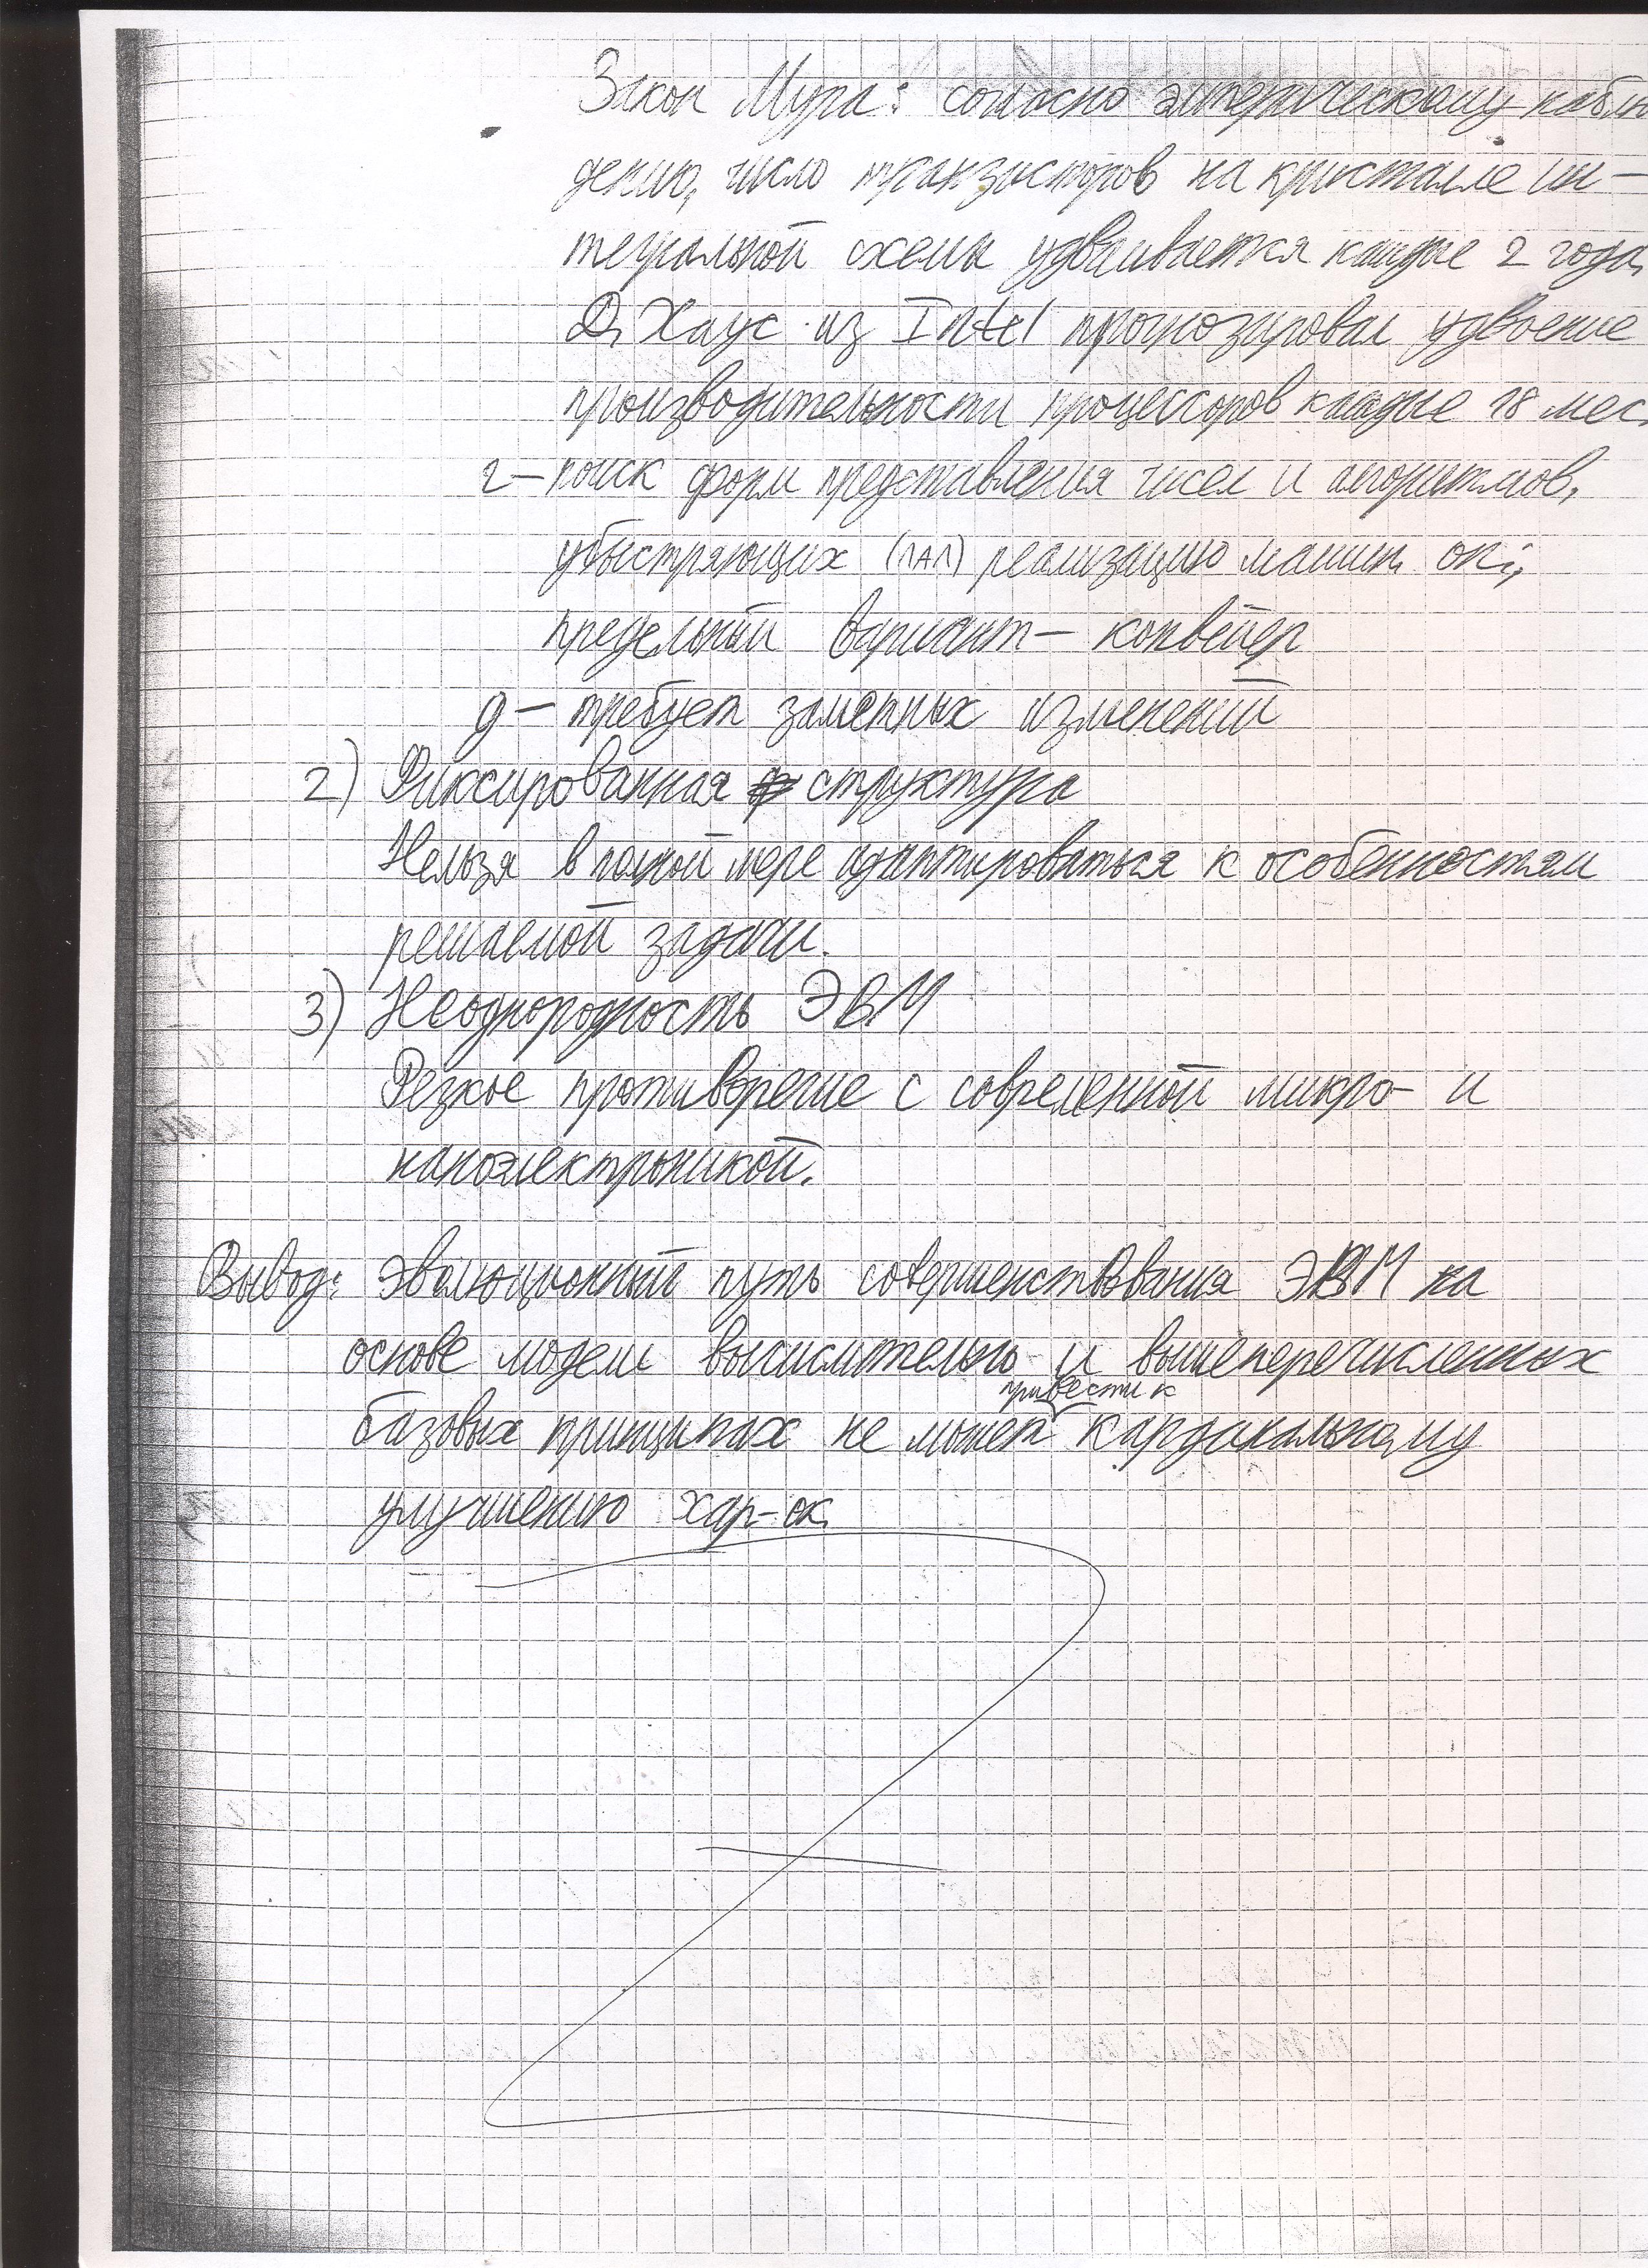 Закон Мура: согласно эмпирическому наблю
дению, число транзисторов на кристалле ин-
тегральной схемы удваивается каждые 2 года.
Д. Хаус из Intel прогнозировал удвоение
производительности процессоров каждые 18 мес.
2 – поиск форм представления чисел и алгоритмов,
убыстряющих (ПАЛ) реализацию машин. оп.;
предельный вариант – конвейер
g – требует заметных изменений
2) Фиксированная структура
Нельзя в полной мере адаптироваться к особенностям
решаемой задачи.
3) Неоднородность ЭВМ
Резкое противоречие с современной микро- и
наноэлектроникой.
Вывод: эволюционный путь совершенствования ЭВМ на
основе модели вычислителя и вышеперечисленных
базовых принципах не может привести к кардинальному
улучшению хар-ок